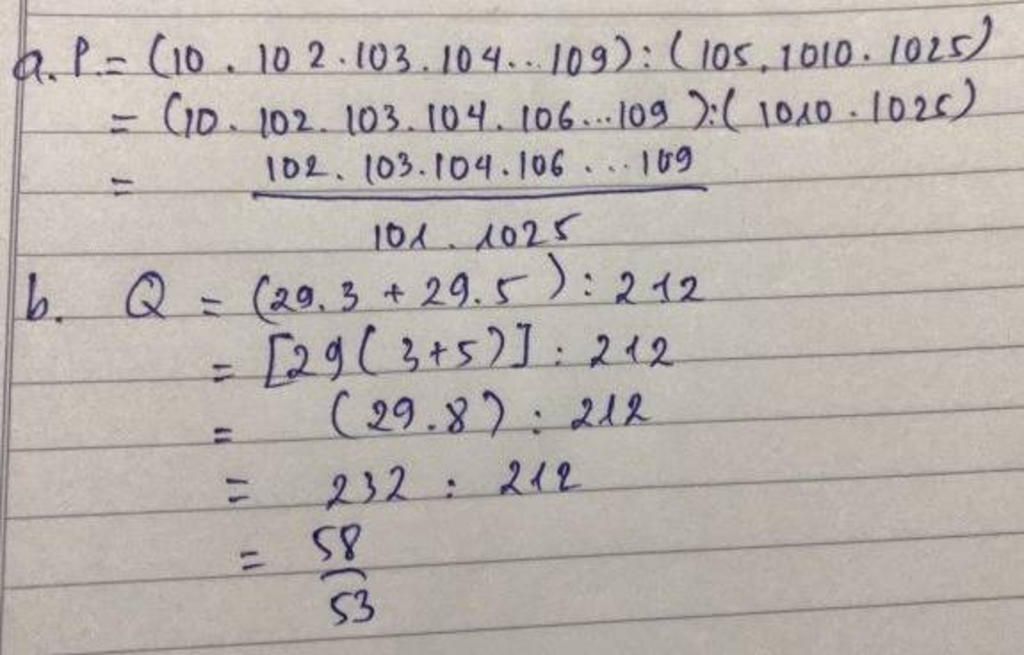 a. P. = (10 . 102 . 103 . 104 ... 109) : (105 . 1010 . 1025)
= (10 . 102 . 103 . 104 . 106 ... 109) : (1010 . 1025)
= 102 . 103 . 104 . 106 ... 109
101 . 1025
b. Q = (29.3 + 29.5) : 212
= [29(3+5)] : 212
= (29.8) : 212
= 232 : 212
= 58
53